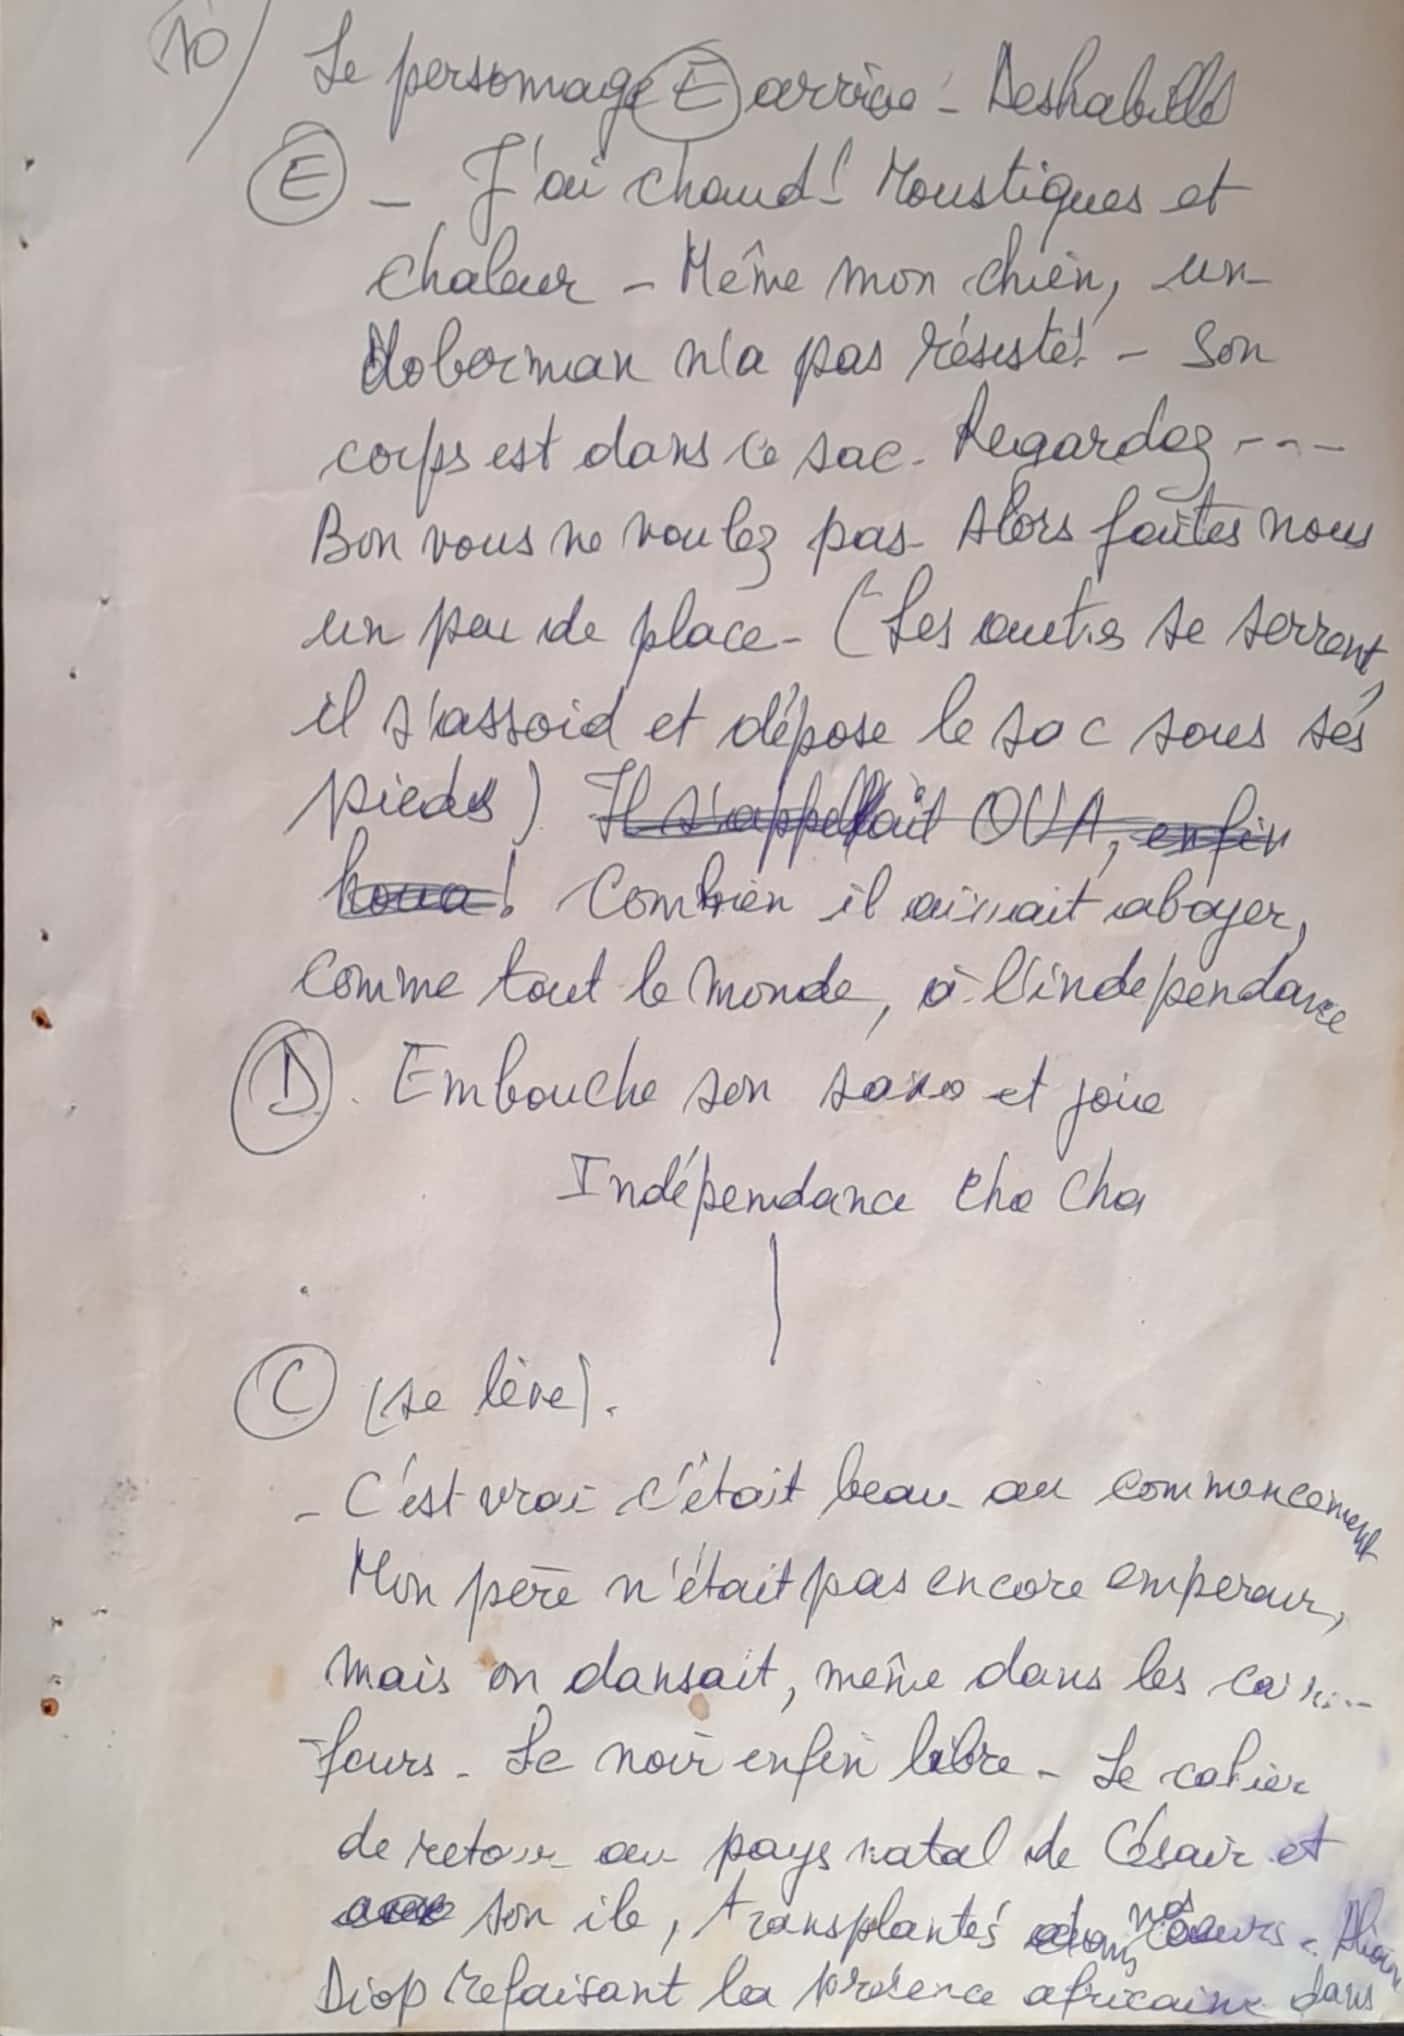 10/ Le personnage E arrive - Deshabillé
E - J'ai chaud! Moustiques et
chaleur - Même mon chien, un
doberman n'a pas résisté! - Son
corps est dans ce sac. Regardez ---
Bon vous ne voulez pas. Alors faites nous
un peu de place - (Les autres se serrent,
il s'assoid et dépose le sac sous ses
pieds) Il s'appellait OUA, enfin
houa! Combien il aimait aboyer,
comme tout le monde, à l'indépendance
D. Embouche son saxo et joue
Indépendance cha cha
C (se lève).
- C'est vrai c'était beau au commencement
Mon père n'était pas encore empereur,
mais on dansait, même dans les carre-
fours - Le noir enfin libre - Le cahier
de retour au pays natal de Césair et
son ile, transplantés dans nos cœurs.
Diop refaisant la présence africaine dans